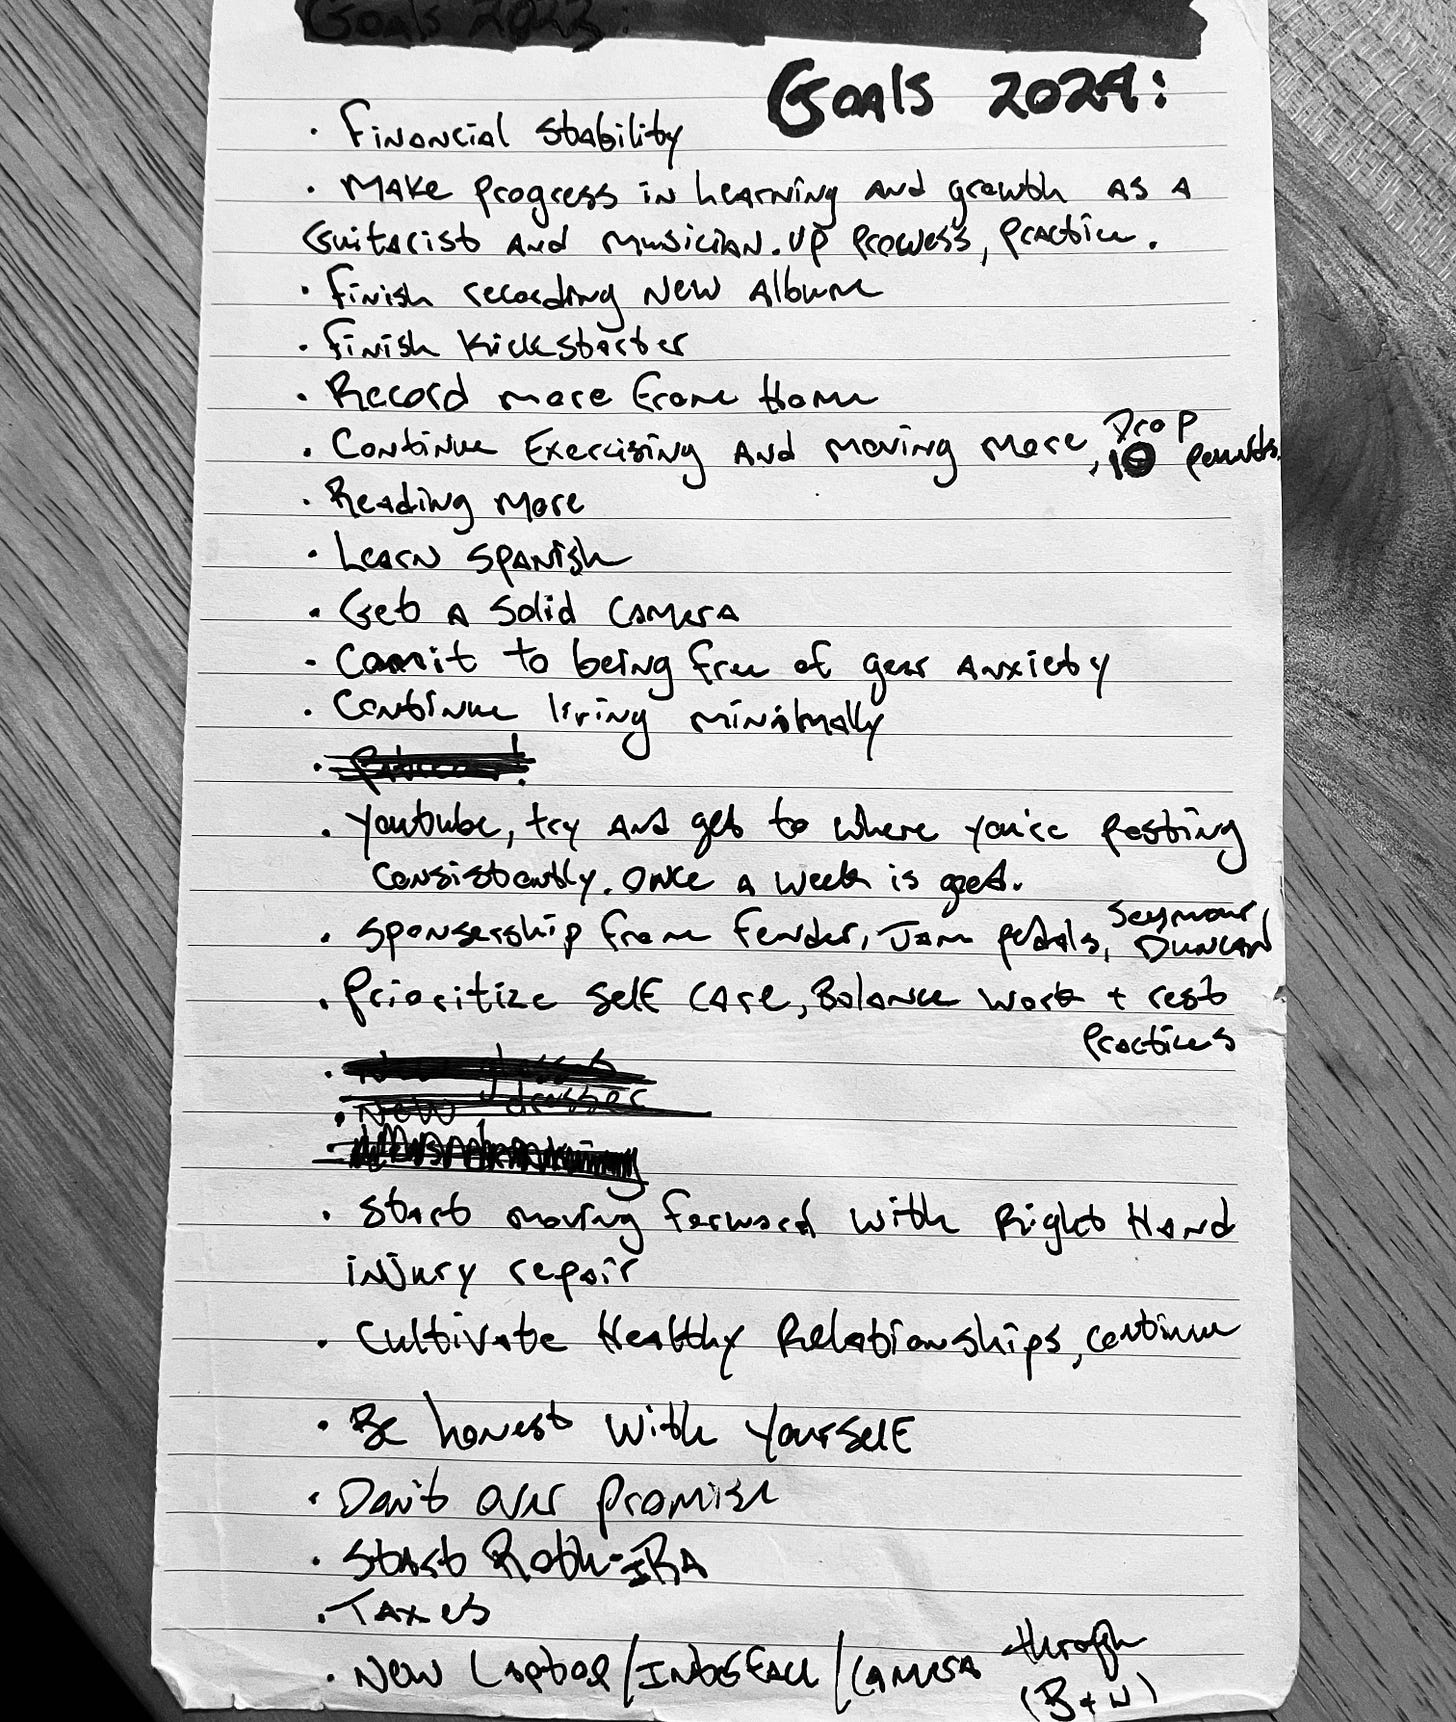 Goals 2023:
Goals 2024:
· Financial Stability
· Make progress in learning and growth as a
Guitarist and musician. Up prowess, practice.
· Finish recording New Album
· Finish Kickstarter
· Record more from Home
· Continue Exercising and moving more, Drop 10 pounds.
· Reading more
· Learn Spanish
· Get a solid camera
· Commit to being free of gear anxiety
· Continue living minimally
· Youtube, try and get to where you're posting
consistently. Once a week is good.
· Sponsership from Fender, Jam pedals, Seymour Duncan
· Prioritize self care, Balance work + rest
practices
· New dresser
· Start moving forward with Right Hand
injury repair
· Cultivate Healthy Relationships, continue
· Be honest with yourself
· Don't over promise
· Start Roth-IRA
· Taxes
· New Laptop/Interface/Camera through
(B+W)